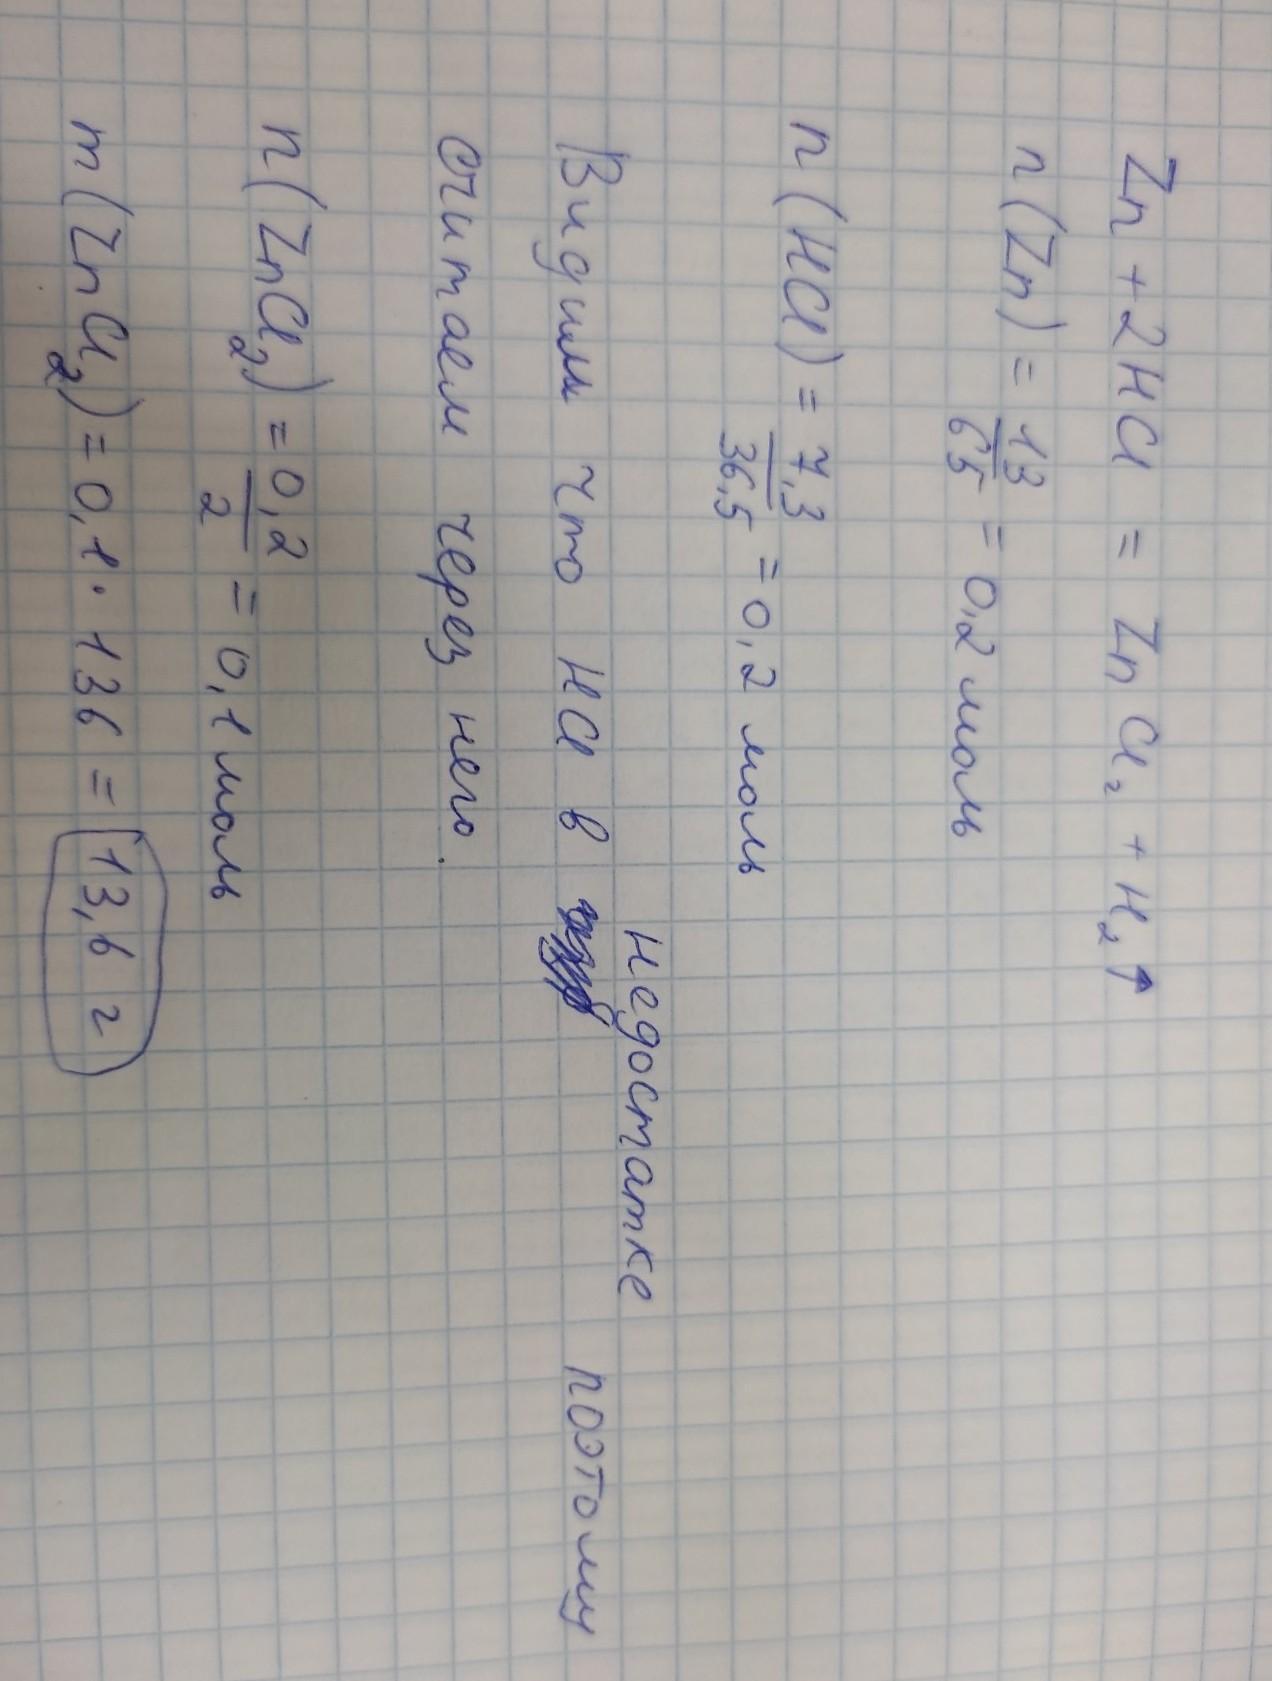 Zn + 2HCl = ZnCl₂ + H₂↑
n(Zn) = 13/65 = 0,2 моль
n(HCl) = 7,3/36,5 = 0,2 моль
Видим что HCl в недостатке поэтому
считаем через него.
n(ZnCl₂) = 0,2/2 = 0,1 моль
m(ZnCl₂) = 0,1 · 136 = 13,6 г